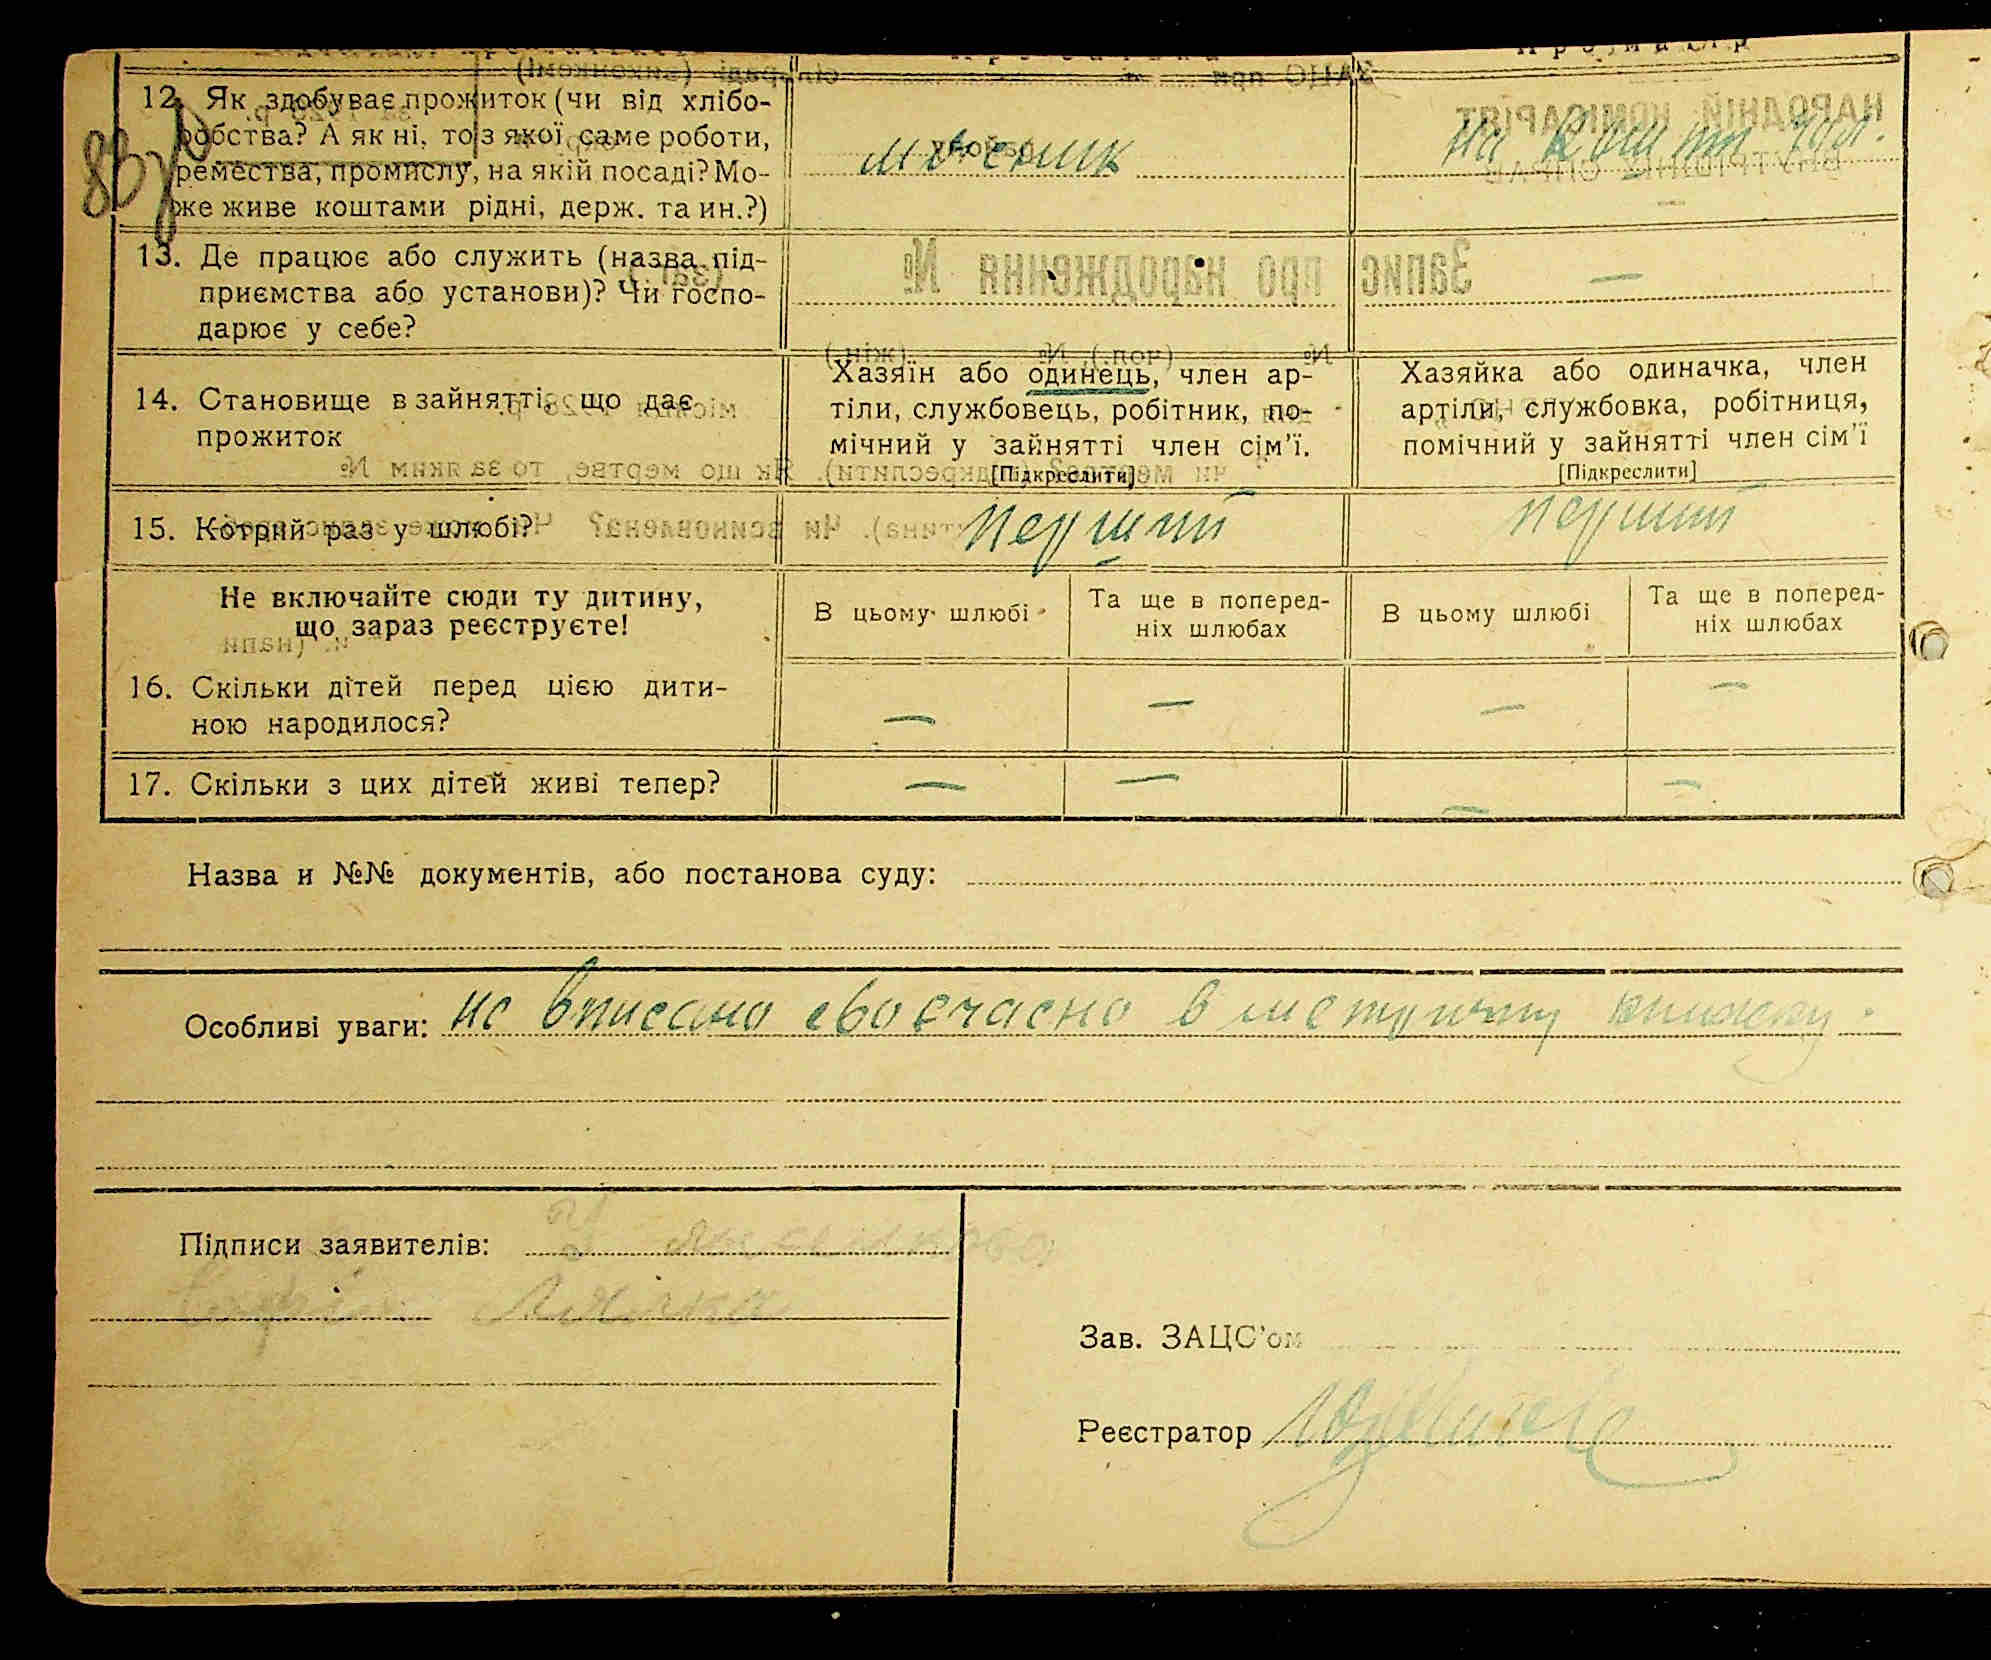 Про батька Про матір
12. Як здобуває прожиток (чи від хлібо-
робства? А як ні, то з якої саме роботи,
ремества, промислу, на якій посаді? Мо-
же живе коштами рідні, держ. та ин.?)
на кошти чол.
13. Де працює або служить (назва під-
приємства або установи)? Чи госпо-
дарює у себе?
—
14. Становище в зайнятті, що дає
прожиток
Хазяїн або одинець, член ар-
тіли, службовець, робітник, по-
мічний у зайнятті член сім'ї.
[Підкреслити]
Хазяйка або одиначка, член
артіли, службовка, робітниця,
помічний у зайнятті член сім'ї
[Підкреслити]
15. Котрий раз у шлюбі? перший перший
Не включайте сюди ту дитину,
що зараз реєструєте!
В цьому шлюбі
Та ще в поперед-
ніх шлюбах
В цьому шлюбі
Та ще в поперед-
ніх шлюбах
16. Скільки дітей перед цією дити-
ною народилося?
— — — —
17. Скільки з цих дітей живі тепер? — — — —
Назва и №№ документів, або постанова суду:
Особливі уваги: не вписано своєчасно в метричну книжку.
Підписи заявителів:
Зав. ЗАЦС'ом
Реєстратор